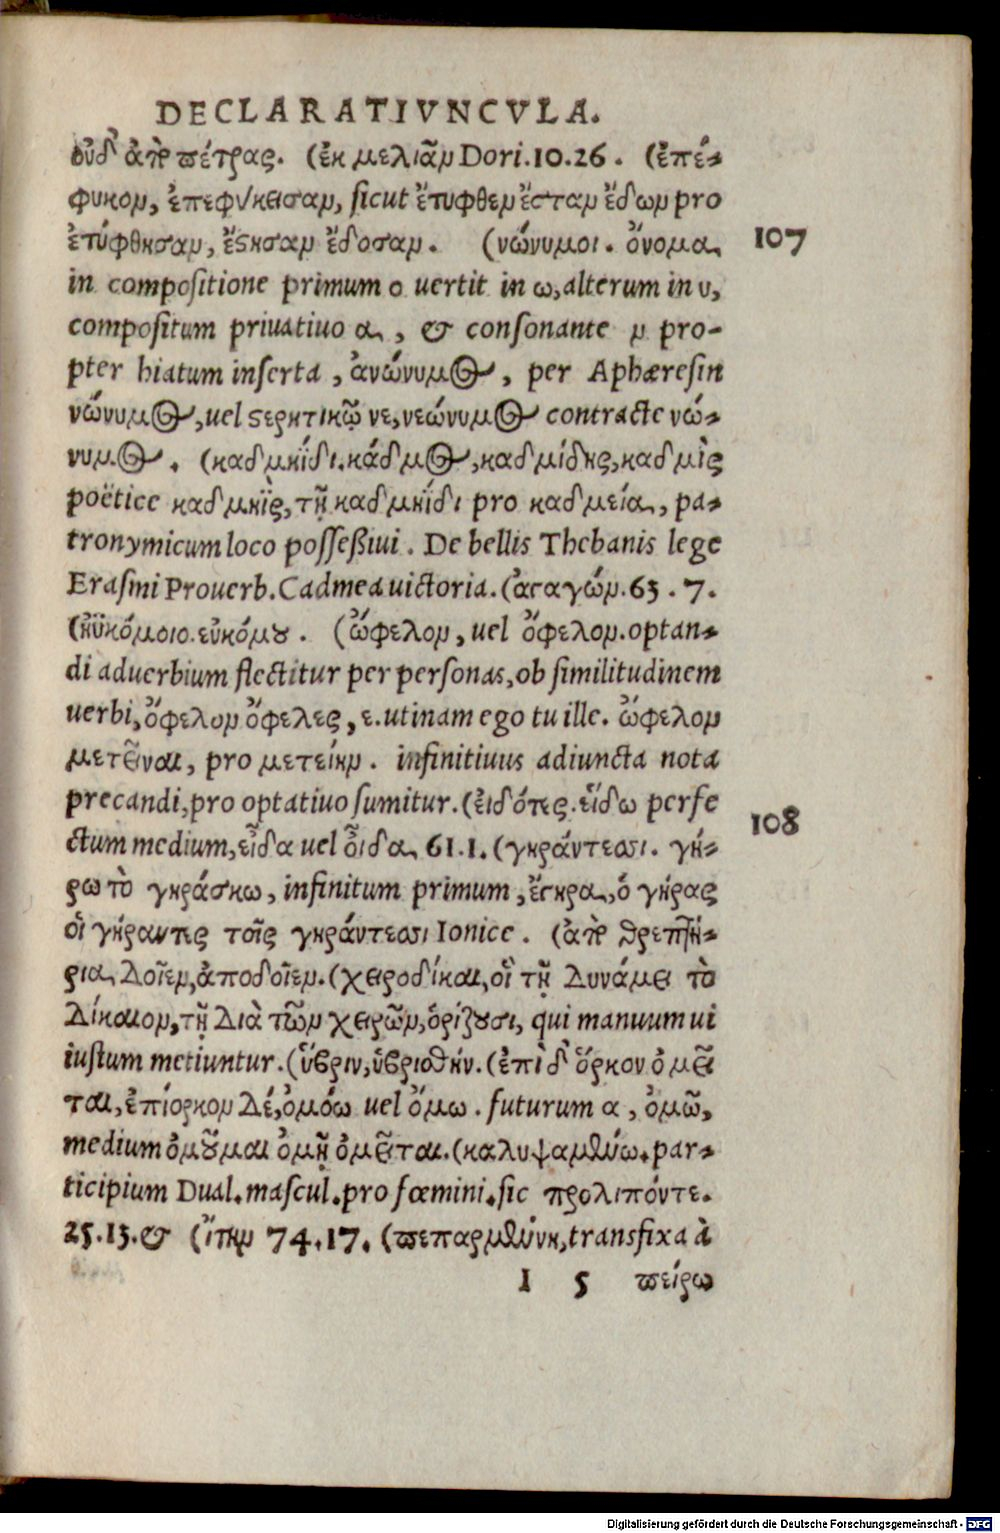 DECLARATIVNCVLA.
οὐδ' ἀπὸ πέτρας. (ἐκ μελιᾶν Dori.10.26. (ἐπέ-
φυκον, ἐπεφύκεισαν, sicut ἔτυφθεν ἔσταν ἔδων pro
ἐτύφθησαν, ἔστησαν ἔδοσαν. (νώνυμοι. ὄνομα
in compositione primum o uertit in ω, alterum in υ,
compositum priuatiuo α, & consonante ν pro-
pter hiatum inserta, ἀνώνυμος, per Aphæresin
νώνυμος, uel στερητικῷ νε, νεώνυμος contracte νώ-
νυμος. (καδμηΐδι. κάδμος, καδμίδης, καδμὶς
poëtice καδμηῒς, τῇ καδμηΐδι pro καδμεία, pa-
tronymicum loco possessiui. De bellis Thebanis lege
Erasmi Prouerb. Cadmea uictoria. (ἀγαγών. 63. 7.
(ηὐκόμοιο. εὐκόμου. (ὤφελον, uel ὄφελον. optan-
di aduerbium flectitur per personas, ob similitudinem
uerbi, ὄφελον ὄφελες, ε. utinam ego tu ille. ὤφελον
μετεῖναι, pro μετείην. infinitiuus adiuncta nota
precandi, pro optatiuo sumitur. (εἰδότες. εἴδω perfe
ctum medium, εἶδα uel οἶδα, 61.1. (γηράντεσσι. γή-
ρω τὸ γηράσκω, infinitum primum, ἔγηρα, ὁ γήρας
οἱ γήραντες τοῖς γηράντεσσι Ionice. (ἀπὸ θρεπτή-
ρια δοῖεν, ἀποδοῖεν. (χειροδίκαι, οἳ τῇ δυνάμει τὸ
δίκαιον, τῇ διὰ τῶν χειρῶν, ὁρίζουσι, qui manuum ui
iustum metiuntur. (ὕβριν, ὑβρισθήν. (ἐπὶ δ' ὅρκον ὀμεῖ
ται, ἐπίορκον δέ, ὀμόω uel ὄμω. futurum α, ὀμῶ,
medium ὀμοῦμαι ὀμῇ ὀμεῖται. (καλυψαμένω. par-
ticipium Dual. mascul. pro fœmini. sic προλιπόντε.
25.13. & (ἴτην 74.17. (πεπαρμένη, transfixa à
I 5 πείρω
107
108
Digitalisierung gefördert durch die Deutsche Forschungsgemeinschaft - DFG